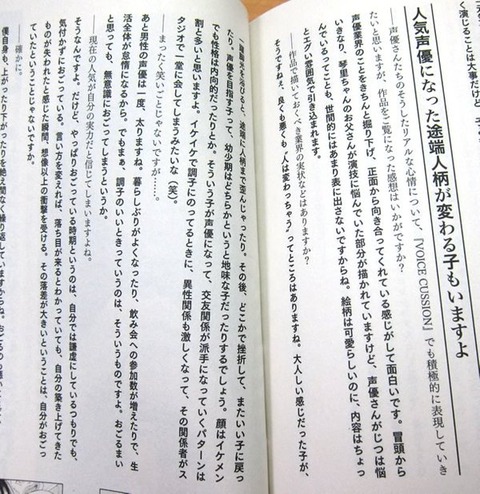 く演じることは大事だけど、子
人気声優になった途端人柄が変わる子もいますよ
――声優さんたちのそうしたリアルな心情について、『VOICE CUSSION』でも積極的に表現していき
たいと思いますが、作品をご覧になった感想はいかがですか?
声優業界のことをきちんと掘り下げ、正面から向き合ってくれている感じがして面白いです。冒頭から
いきなり、琴里ちゃんのお父さんが演技に悩んでいた部分が描かれていますけど、声優さんがじつは悩
んでいるってことも、世間的にはあまり表に出さないですからね。絵柄は可愛らしいのに、内容はちょっ
とエグい雰囲気で引き込まれます。
――作品で描いておくべき業界の実状などはありますか?
そうですねぇ、良くも悪くも〝人は変わっちゃう〟ってところはありますね。大人しい感じだった子が、
一躍脚光を浴びると、途端に人柄まで歪んじゃったり。その後、どこかで挫折して、またいい子に戻っ
たり。声優を目指す子って、幼少期はどちらかというと地味な子だったりするでしょう。顔はイケメン
でも性格は内向的だったりとか。そういう子が声優になって、交友関係が派手になっていくパターンは
割と多いと思いますよ。イケイケで調子にのってるときに、異性関係も激しくなって、その関係者がス
タジオで一堂に会してしまうみたいな(笑)。
――まったく笑いごとじゃないですが……。
あと男性の声優は一度、太りますね。暮らしぶりがよくなったり、飲み会への参加数が増えたりで、生
活全体が怠惰になるから。でもまぁ、調子のいいときっていうのは、そういうものですよ。おごるまい
と思っても、無意識におごってしまうというか。
――現在の人気が自分の実力だと信じてしまいますよね。
そうなんですよ。だけど、やっぱりおごっている時期というのは、自分では謙虚にしているつもりでも、
気付かずにおごっている。言い方を変えれば、落ち目が来るとわかっていても、自分の築き上げてきた
ものが失われたと感じた瞬間、想像以上の衝撃を受ける。その落差が大きいということは、自分がおごっ
ていたということじゃないですか。
――確かに。
僕自身も、上がったり下がったりを絶え間なく繰り返していますからね。